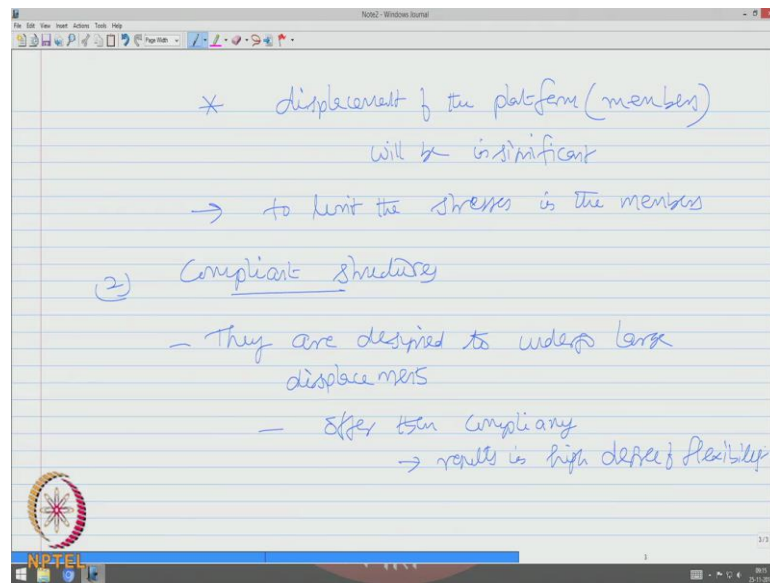 Note2 - Windows Journal
File Edit View Insert Actions Tools Help
Page Width
* displacement of the platform (members)
will be insignificant
→ to limit the stresses in the members
(2) Compliant structures
- They are designed to undergo large
displacements
- offer compliancy
→ results in high degree of flexibility
3/3
NPTEL
1
09:15